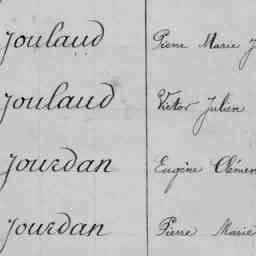 Joulaud Pierre Marie J
Joulaud Victor Julien
Jourdan Eugène Clémen
Jourdan Pierre Marie